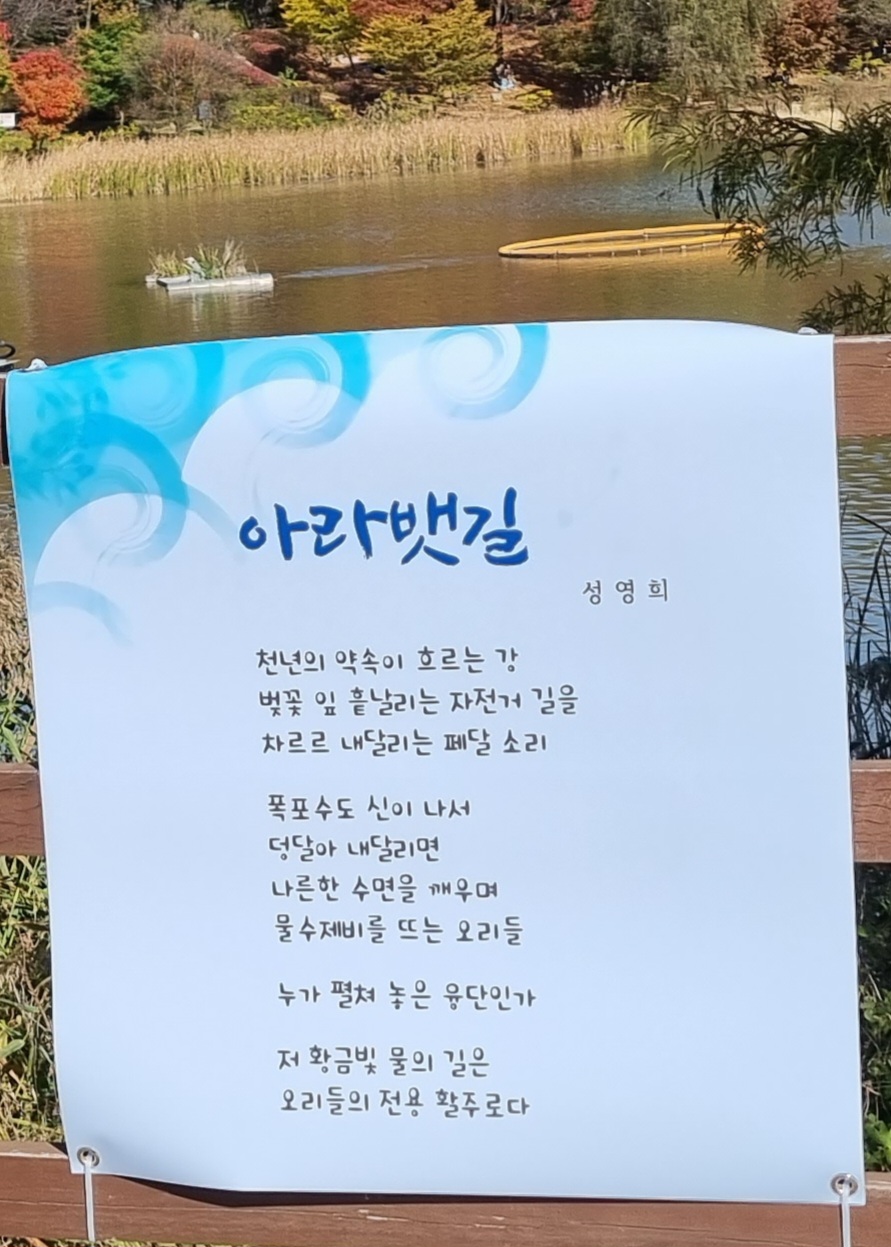 아라뱃길
성영희
천년의 약속이 흐르는 강
벚꽃 잎 흩날리는 자전거 길을
차르르 내달리는 페달 소리
폭포수도 신이 나서
덩달아 내달리면
나른한 수면을 깨우며
물수제비를 뜨는 오리들
누가 펼쳐 놓은 융단인가
저 황금빛 물의 길은
오리들의 전용 활주로다